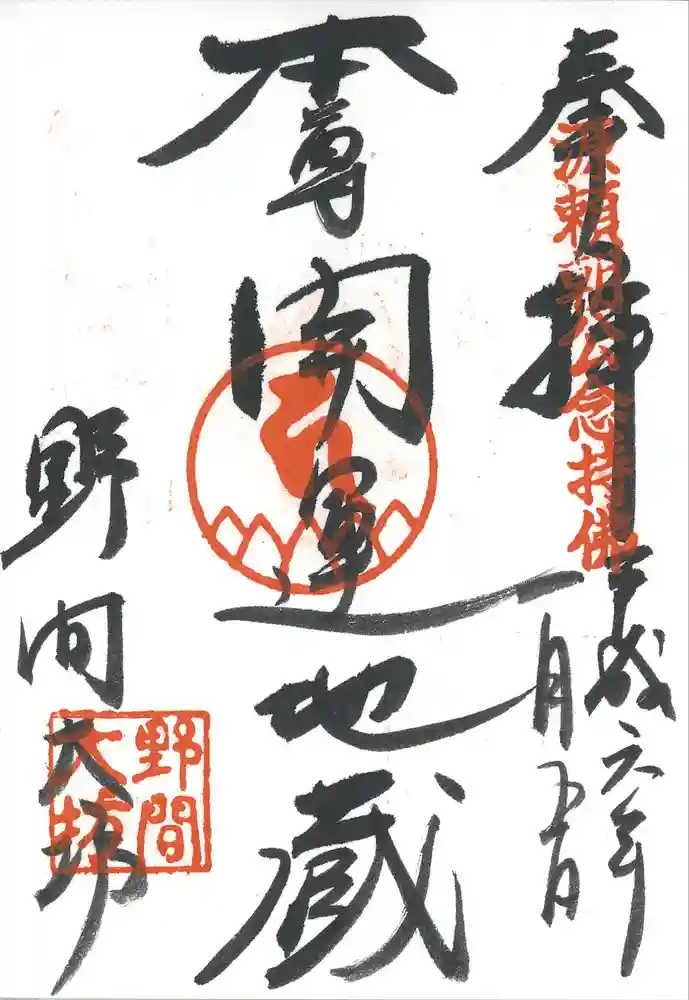 奉拝
源頼朝公念持佛
平成六年
月十五日
本尊開運地蔵
野間大坊
野間
大坊